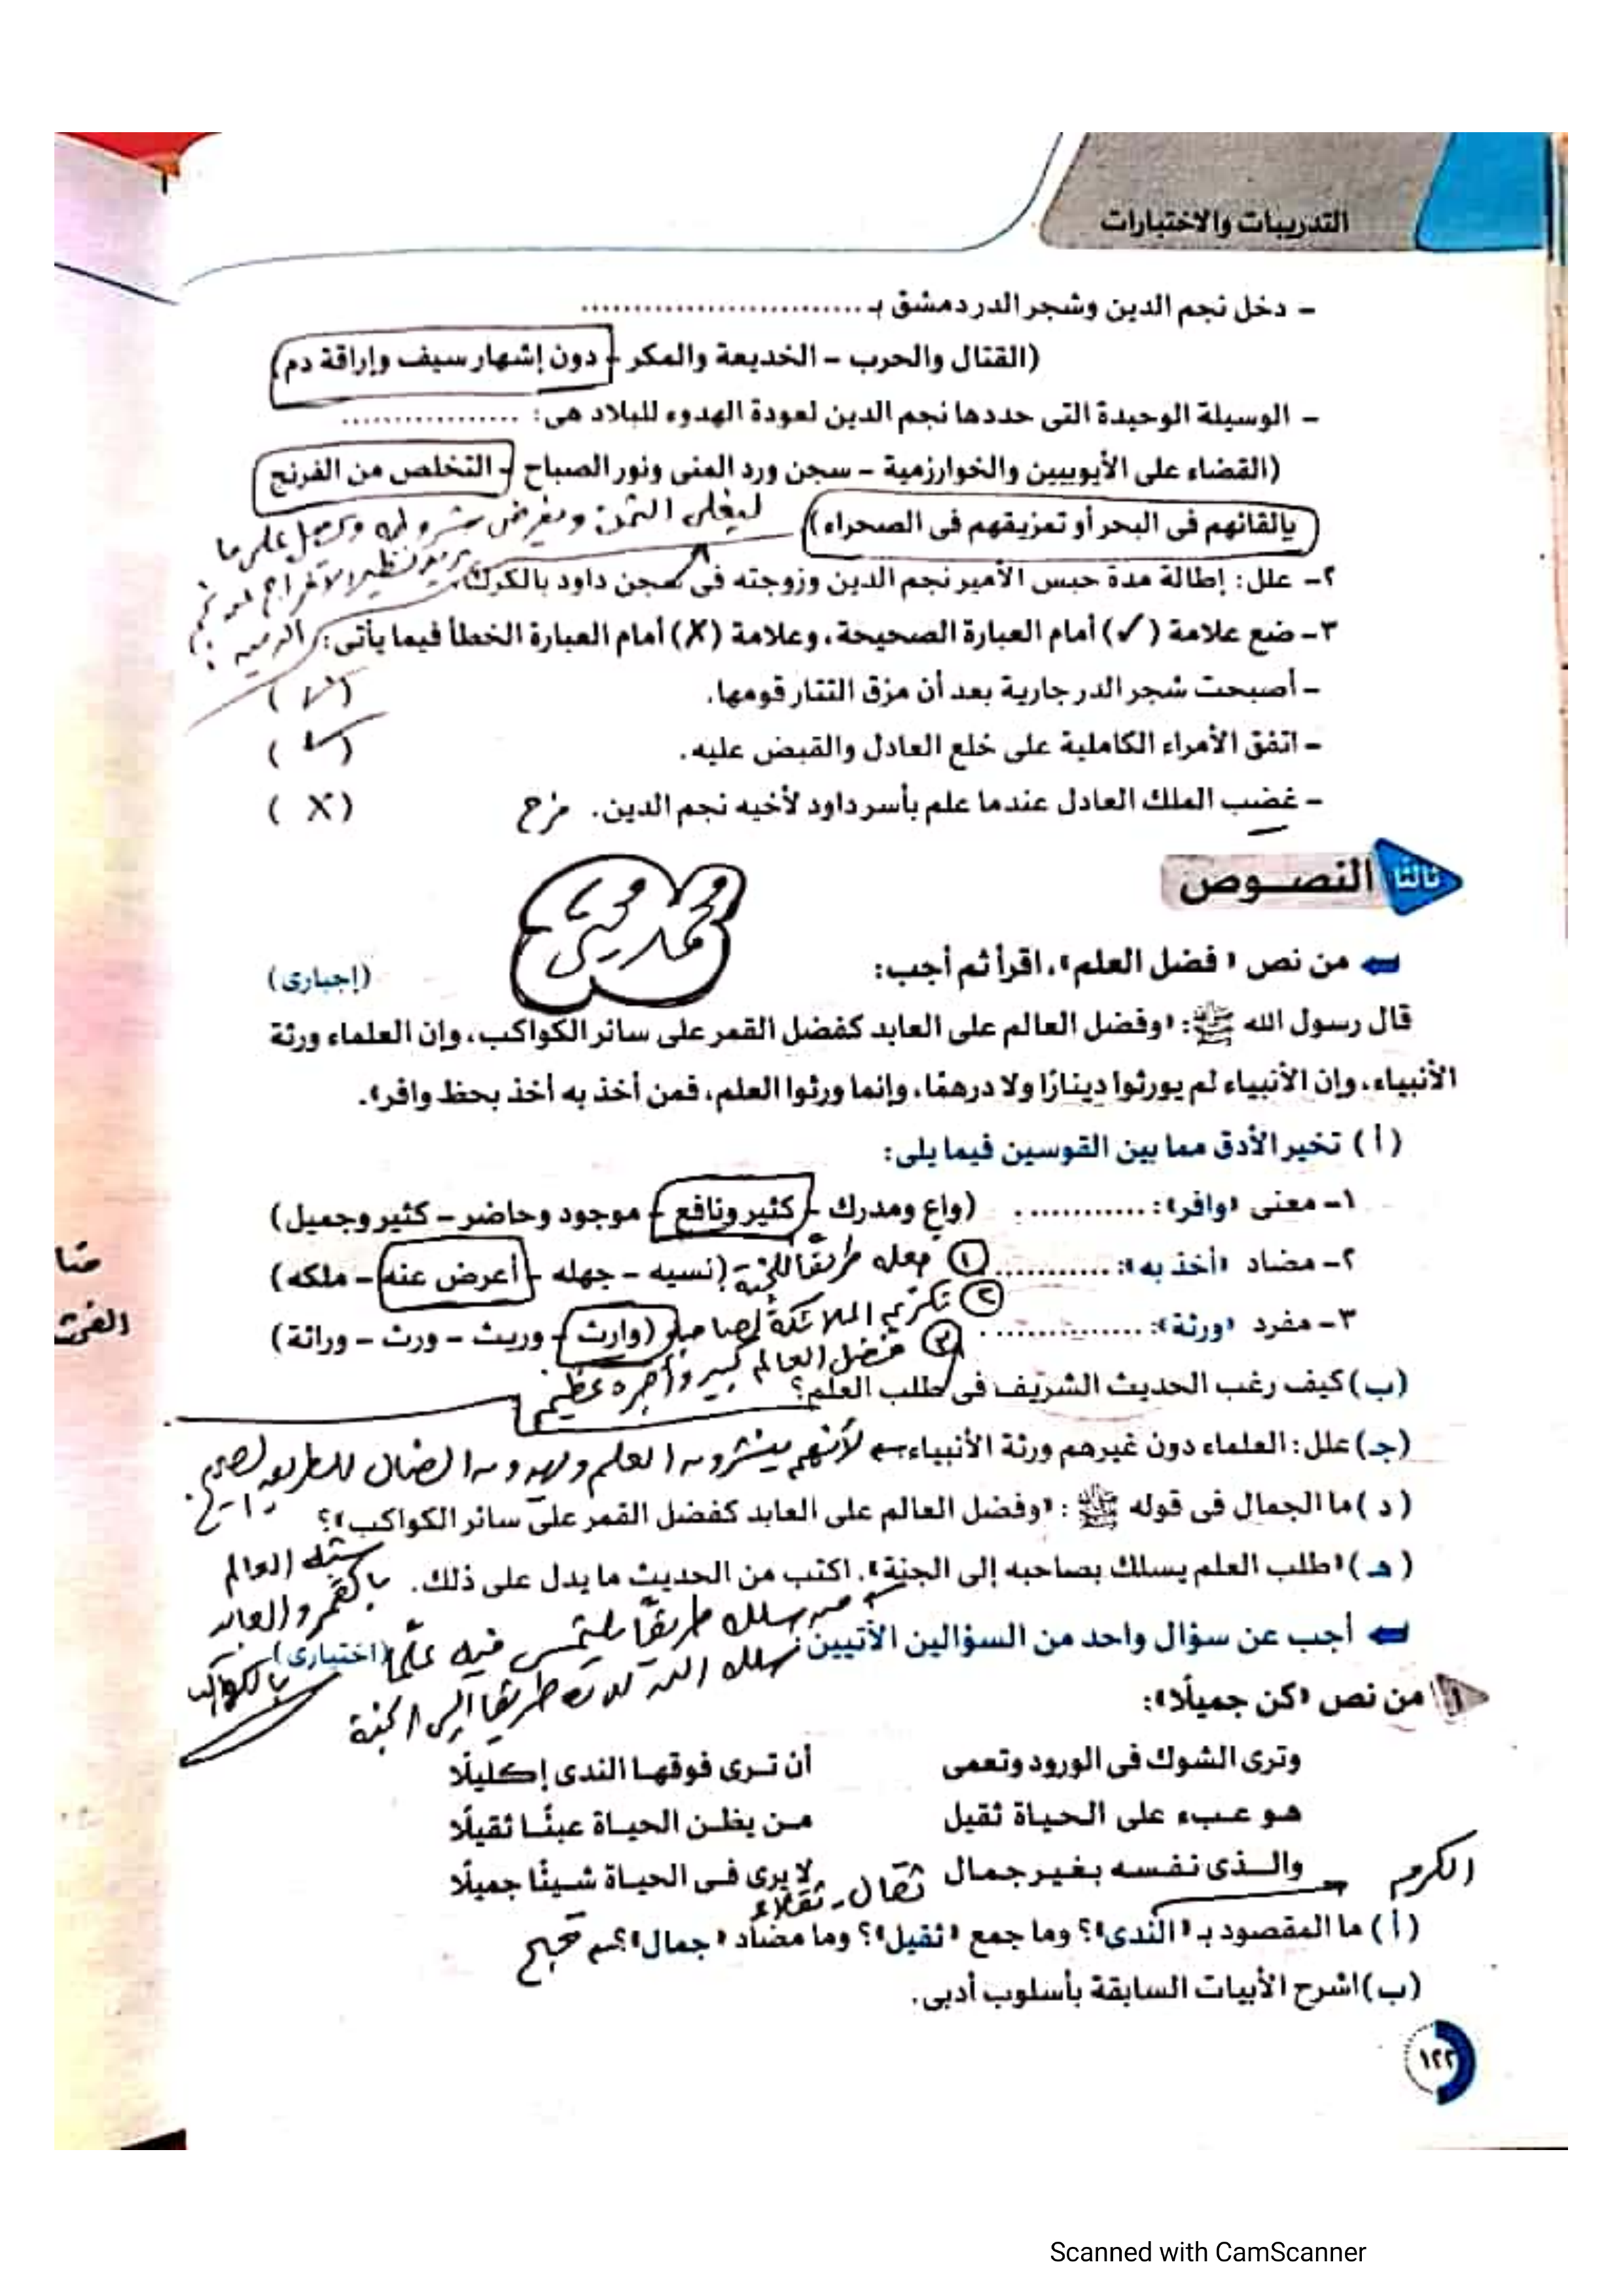 التدريبات والاختبارات
- دخل نجم الدين وشجر الدر دمشق بـ ............................
(القتال والحرب - الخديعة والمكر - دون إشهار سيف وإراقة دم)
- الوسيلة الوحيدة التى حددها نجم الدين لعودة الهدوء للبلاد هى: ..................
(القضاء على الأيوبيين والخوارزمية - سجن ورد المنى ونور الصباح - التخلص من الفرنج
بإلقائهم فى البحر أو تمزيقهم فى الصحراء)
ليغلى الثمن ويفرض شروطه ويحصل على ما
يريد نظير الإفراج عنه
٢- علل: إطالة مدة حبس الأمير نجم الدين وزوجته فى سجن داود بالكرك.
٣- ضع علامة (✓) أمام العبارة الصحيحة، وعلامة (X) أمام العبارة الخطأ فيما يأتى:
- أصبحت شجر الدر جارية بعد أن مزق التتار قومها. (✓)
- اتفق الأمراء الكاملية على خلع العادل والقبض عليه. (✓)
- غضب الملك العادل عندما علم بأسر داود لأخيه نجم الدين. فرح (X)
ثالثا النصــوص
محمد محيى
من نص «فضل العلم»، اقرأ ثم أجب: (إجبارى)
قال رسول الله ﷺ: «وفضل العالم على العابد كفضل القمر على سائر الكواكب، وإن العلماء ورثة
الأنبياء، وإن الأنبياء لم يورثوا دينارًا ولا درهمًا، وإنما ورثوا العلم، فمن أخذ به أخذ بحظ وافر».
(أ) تخير الأدق مما بين القوسين فيما يلى:
١- معنى «وافر»: ............. (واع ومدرك - كثير ونافع - موجود وحاضر - كثير وجميل)
٢- مضاد «أخذ به»: ............ (نسيه - جهله - أعرض عنه - ملكه)
① جعله طريقًا للجنة
٣- مفرد «ورثة»: ............... (وارث - وريث - ورث - وراثة)
② تكريم الملائكة لصاحبه
③ فضل العالم كبير وأجره عظيم
(ب) كيف رغب الحديث الشريف فى طلب العلم؟
(جـ) علل: العلماء دون غيرهم ورثة الأنبياء لأنهم ينشرون العلم ويهدون الضال للطريق الصحيح
(د) ما الجمال فى قوله ﷺ: «وفضل العالم على العابد كفضل القمر على سائر الكواكب»؟
شبه العالم
بالقمر والعابد
بالكواكب
(هـ) «طلب العلم يسلك بصاحبه إلى الجنة». اكتب من الحديث ما يدل على ذلك.
من سلك طريقًا يلتمس فيه علمًا
سلك الله به طريقا إلى الجنة
أجب عن سؤال واحد من السؤالين الآتيين: (اختيارى)
١ من نص «كن جميلًا»:
وترى الشوك فى الورود وتعمى أن تـرى فوقهـا الندى إكليلًا
هـو عـبء على الحياة ثقيل مـن يظـن الحيـاة عبئًـا ثقيلًا
والـذى نفسـه بغير جمال لا يرى فـى الحيـاة شـيئًا جميلًا
الكرم
ثقال - ثقلاء
(أ) ما المقصود بـ «الندى»؟ وما جمع «ثقيل»؟ وما مضاد «جمال»؟ قبح
(ب) اشرح الأبيات السابقة بأسلوب أدبى.
١٢٢
Scanned with CamScanner